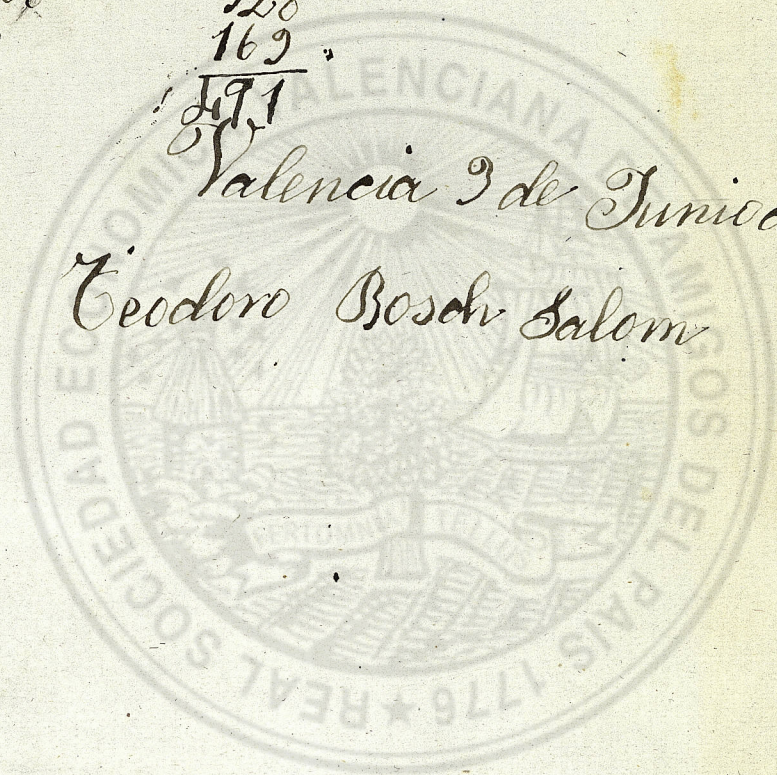 169
491
Valencia 3 de Junio
Teodoro Bosch Salom
REAL SOCIEDAD ECONOMICA VALENCIANA DE AMIGOS DEL PAIS 1776
FERT OMNIA TELLUS